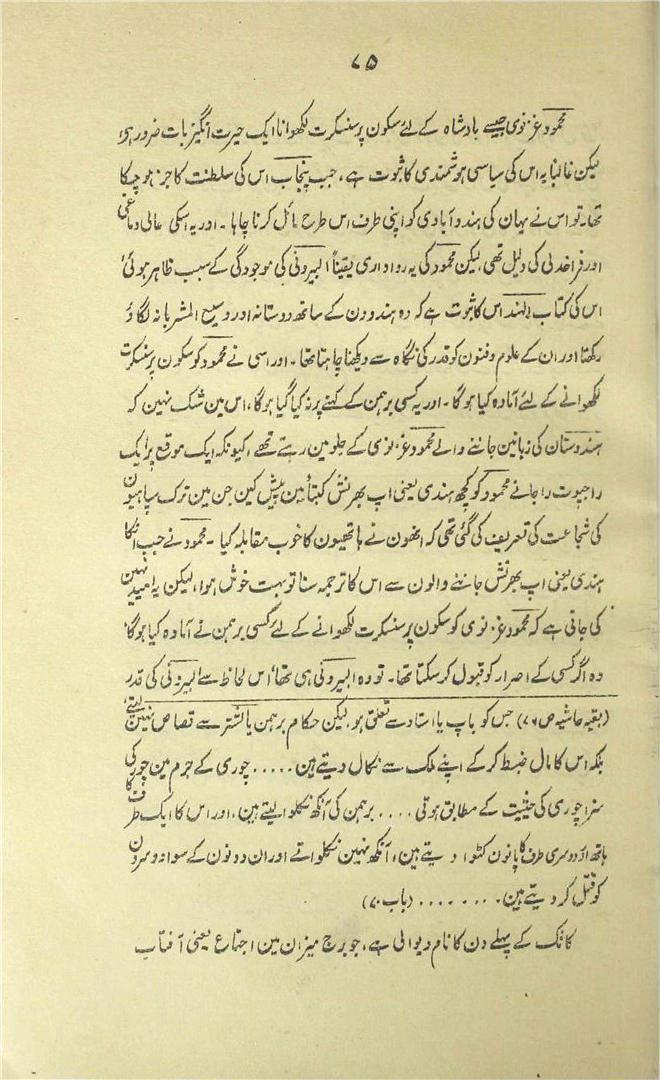 ۷۵
محمود غزنوی جیسے بادشاہ کے لئے سکون پر سنسکرت لکھوانا ایک حیرت انگیز بات ضرور ہی،
لیکن غالبًا یہ اس کی سیاسی ہوشمندی کا ثبوت ہے، جب پنجاب اس کی سلطنت کا جز ہو چکا
تھا، تو اس نے یہان کی ہندو آبادی کو اپنی طرف اس طرح مائل کرنا چاہا ۔ اور یہ اسکی عالی دماغی
اور فراخدلی کی دلیل تھی، لیکن محمود کی یہ رواداری یقیناً البیرونی کی موجودگی کے سبب ظاہر ہوئی،
اس کی کتاب الہند اس کا ثبوت ہے کہ وہ ہندوون کے ساتھ دوستانہ اور وسیع المشربانہ لگاؤ
رکھتا اور ان کے علوم و فنون کو قدر کی نگاہ سے دیکھنا چاہتا تھا۔ اور اسی نے محمود کو سکون پر سنسکرت
لکھوانے کے لئے آمادہ کیا ہوگا ۔ اور یہ کسی برہمن کے کہنے پر نہ کیا گیا ہوگا، اس مین شک نہین کہ
ہندوستان کی زبانین جاننے والے محمود غزنوی کے جلو مین رہتے تھے، کیونکہ ایک موقع پر ایک
راجپوت راجا نے محمود کو کچھ ہندی یعنی اپ بھرنش کبتائین پیش کین جن مین ترک سپاہیون
کی شجاعت کی تعریف کی گئی تھی کہ انھون نے ہاتھیون کا خوب مقابلہ کیا ۔ محمود نے جب انکا
ہندی یعنی اپ بھرنش جاننے والون سے اس کا ترجمہ سنا تو بہت خوش ہوا، لیکن یہ امید نہین
کی جاتی ہے کہ محمود غزنوی کو سکون پر سنسکرت لکھوانے کے لئے کسی برہمن نے آمادہ کیا ہوگا،
وہ اگر کسی کے اصرار کو قبول کر سکتا تھا۔ تو وہ البیرونی ہی تھا، اس لحاظ سے البیرونی کی قدر
(بقیہ حاشیہ ص ۷۶) جس کو باپ یا استاد سے تعلق ہو، لیکن حکام برہمن یا کشتر سے قصاص نہین لیتے،
بلکہ اس کا مال ضبط کر کے اپنے ملک سے نکال دیتے ہین ..... چوری کے جرم مین چور کی
سزا چوری کی حیثیت کے مطابق ہوتی .... برہمن کی آنکھ نکلوا لیتے ہین، اور اس کا ایک طرف کا
ہاتھ اور دوسری طرف کا پانون کٹوا دیتے ہین، آنکھ نہین نکلواتے اور ان دونون کے سوا دوسرون
کو قتل کر دیتے ہین، ....... (باب ۷۰)
کاتک کے پہلے دن کا نام دیوالی ہے، جو برج میزان مین اجتماع یعنی آفتاب